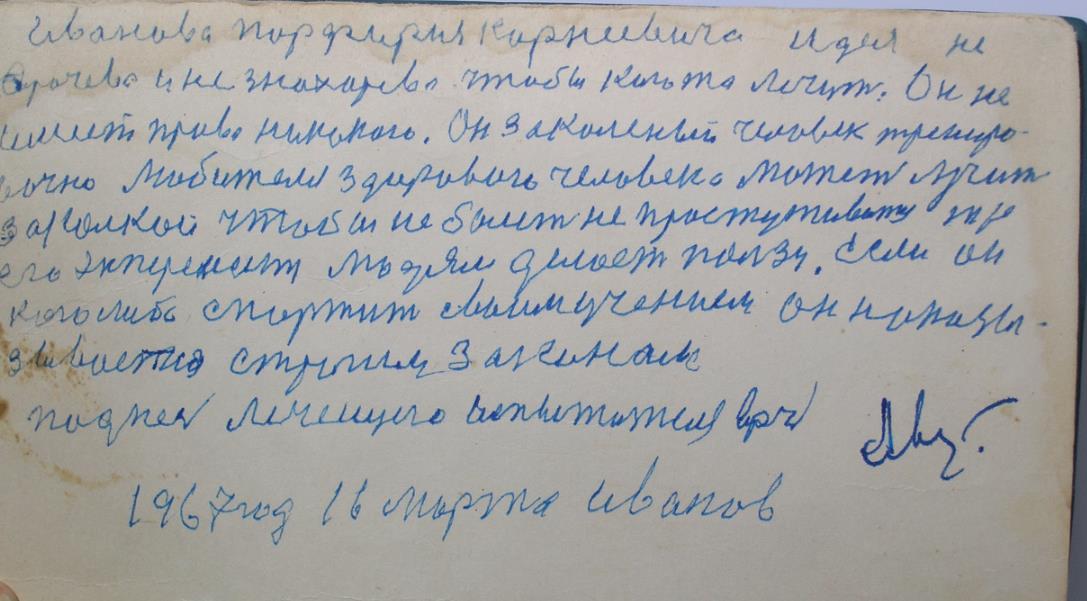 Иванова Порфирия Корнеевича идея не
врачева и не знахарева чтобы кого та лечит. Он не
имеет право никокого. Он заколеный человек трениро-
вочно Любителя здорового человека может лучит
заколкой чтобы не болет не простуживат
его экперемент людям делает ползу. Если он
коголибо спортит своимучением он наказы-
зывается строгим законам
лечещего испытателя врч
1967 год 16 Марта Иванов